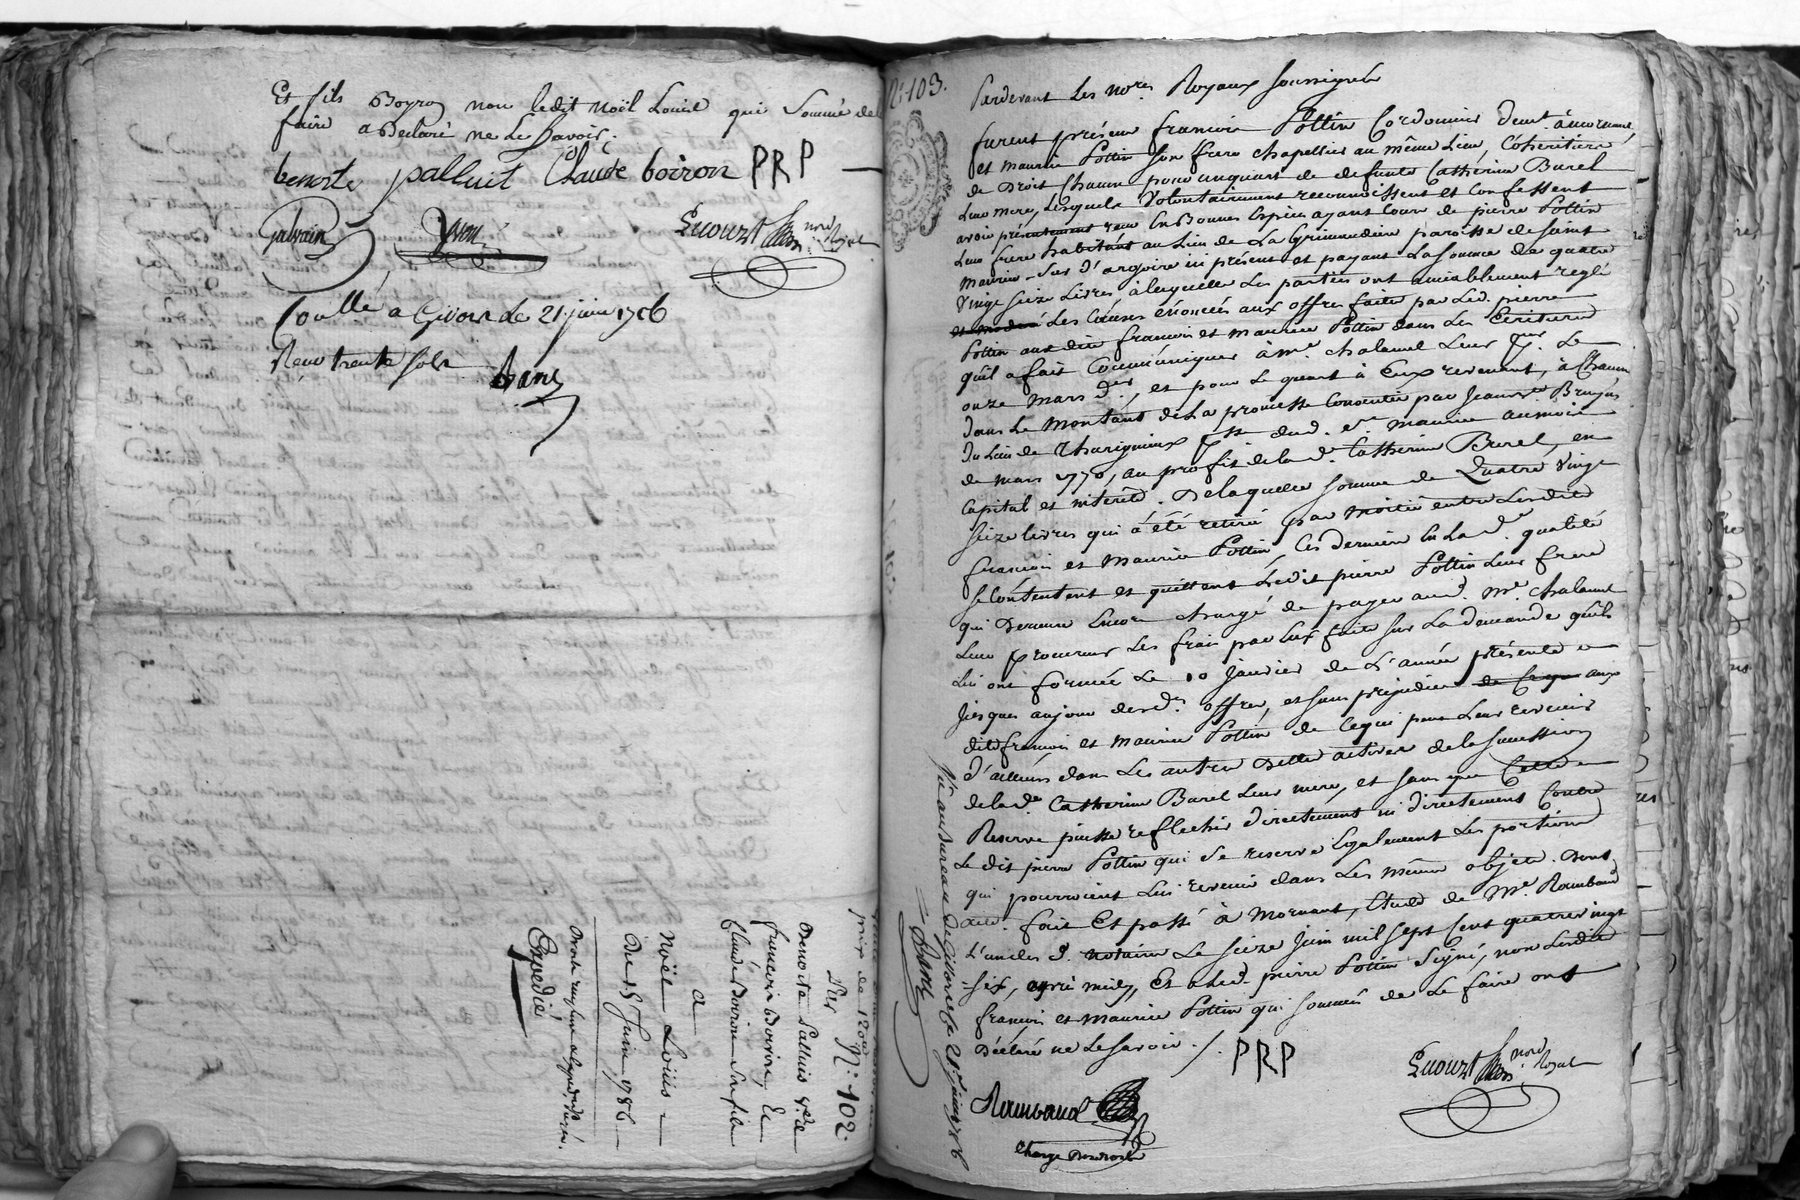 Et fils Boyron non ledit Noël Louis qui Sommé de
faire a Declaré ne le Savoir.
benoite palluit Claude boiron PRP
Galvain
Lucouzt nore Royal
Coullé a Givors le 21 juin 1786
Reçu trente sols
N° 102.
Benoite Palluis Vve
francois Boiron, Et
Claude Boiron Son fils
a
Noël Louis
Du 15 Juin 1786
Expedié
N° 103.
Pardevant Les nores Royaux soussignés
furent présens francois Pottin Cordonnier demt à mornant,
et maurice Pottin son frere chapellier au même Lieu, Cohéritiers
de Droit Chacun pour un quart de defunte Catherine Burel
Leur mere, Lesquels Volontairement reconnoissent et Confessent
avoir présentement reçu En Bonnes Especes ayant Cours de pierre Pottin
Leur frere habitant au Lieu de La Grimaudiere paroisse de saint
maurice sur d'argoire ici présent et payant La somme de quatre
Vingt seize Livres, à laquelle Les parties ont amiablement reglé
Les Causes énoncées aux offres faites par Led. pierre
Pottin aux dits francois et maurice Pottin dans Les Ecritures
qu'il a fait Communiquer à me. chalamel Leur pr. Le
onze mars dr, et pour Le quart à Eux revenant, à Chacun
dans Le montant de La promesse Consentie par Jeanne Bruyas
du Lieu de psse dud. st. maurice au mois
de mars 1770, au profit de la de. Catherine Burel, en
Capital et interêts. De laquelle somme de Quatre Vingt
seize livres qui a été retiré par moitié entre Lesdits
francois et maurice Pottin, Ces derniers En La de. qualité
se Contentent et quittent Ledit pierre Pottin Leur frere
qui demeure Encore Chargé de payer aud. me. chalamel
Leur procureur Les frais par Eux faits sur La demande qu'ils
Lui ont formée Le 10 Janvier de L'année présente
jusques au jour des d. offres, et sans préjudice aux
dits francois et maurice Pottin de Ce qui peut Leur revenir
d'ailleurs dans Les autres Dettes actives de la succession
de la de Catherine Burel Leur mere, et sans que Cette
Reserve puisse reflechir directement ni indirectement Contre
Le dit pierre Pottin qui se reserve Egalement Les portions
qui pourroient Lui revenir dans Les mêmes objets. Dont
acte. fait Et passé à Mornant, Etude de Me Rambaud
L'un des d. notaires Le seize Juin mil sept Cent quatre vingt
six, après midy, Et a Led. pierre Pottin signé, non Lesdits
francois et maurice Pottin qui sommés de Le faire ont
Déclaré ne Le savoir ./. PRP
Lucouzt nore Royal
Rambaud